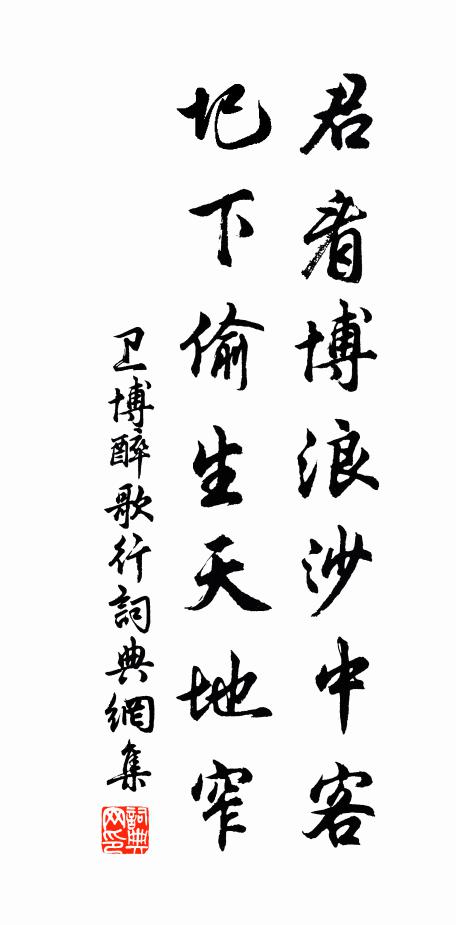 君看博浪沙中客
圯下偷生天地窄
卫博醉歌行詞典網集
詞典网印